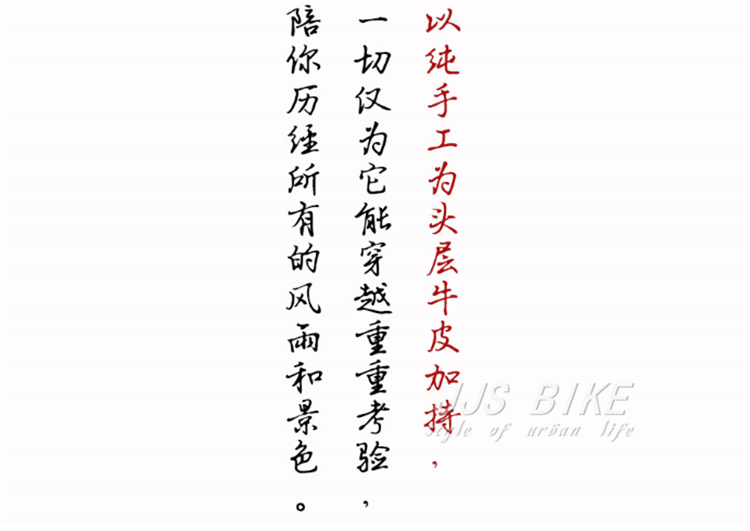 以纯手工为头层牛皮加持，
一切仅为它能穿越重重考验，
陪你历经所有的风雨和景色。
JJS BIKE
style of urban life